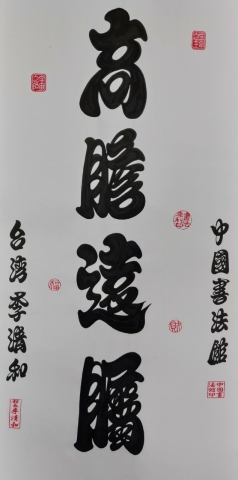 中國書法館
高瞻遠矚
台湾李清和